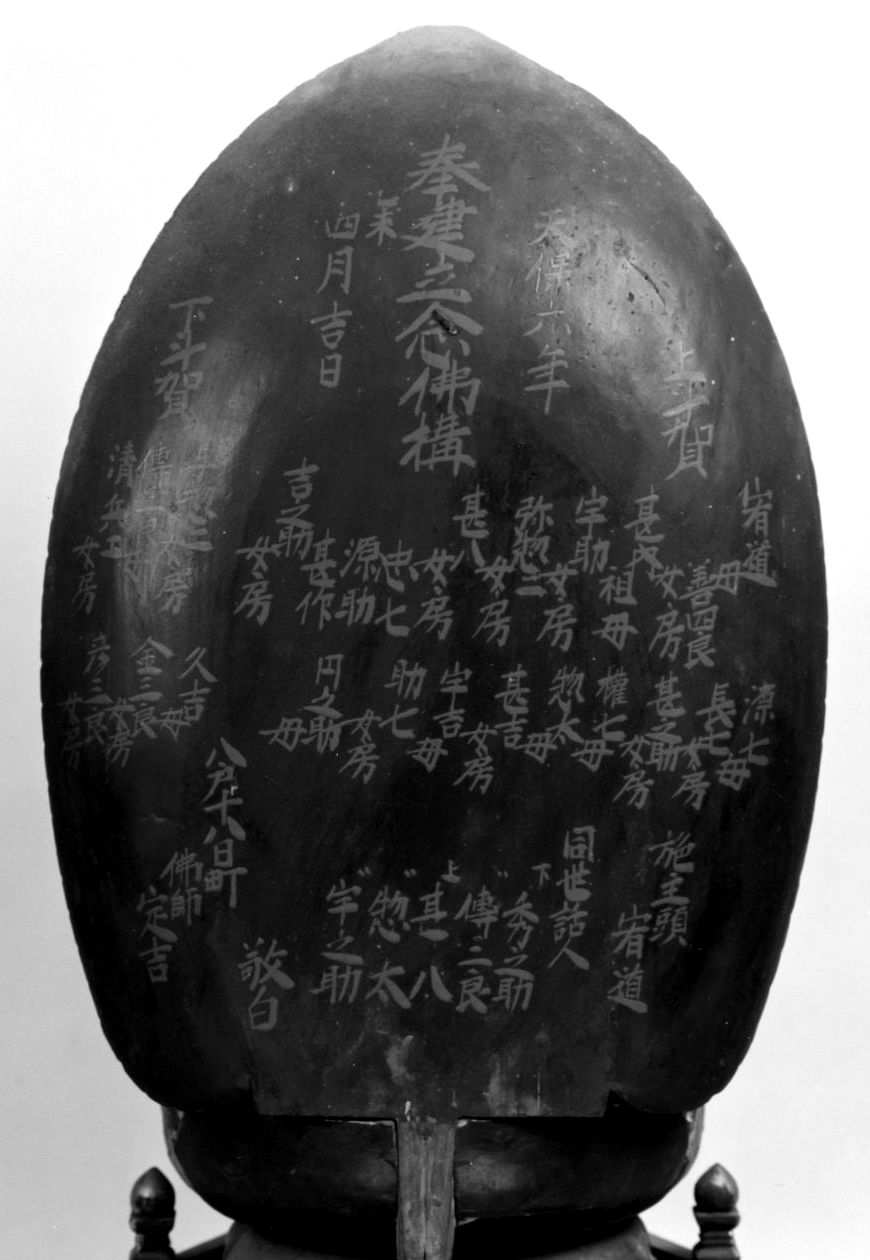 奉建立念佛構
天保六年
乙未
四月吉日
上斗賀
宥道
母
善四良
甚成
女房
宇助
祖母
弥惣二
女房
甚八
女房
女房
忠七
源助
甚作
吉之助
女房
源七
長七母
甚之助
女房
權七母
女房
惣太
母
甚吉
女房
宇吉母
助七
女房
円之助
母
下斗賀
与惣三
女房
清兵工
女房
久吉母
金三良
女房
彦三良
女房
施主頭
宥道
同世話人
下 秀之助
〃 傳三良
上 甚八
〃 惣太
〃 宇之助
敬白
八戸十八日町
佛師
定吉